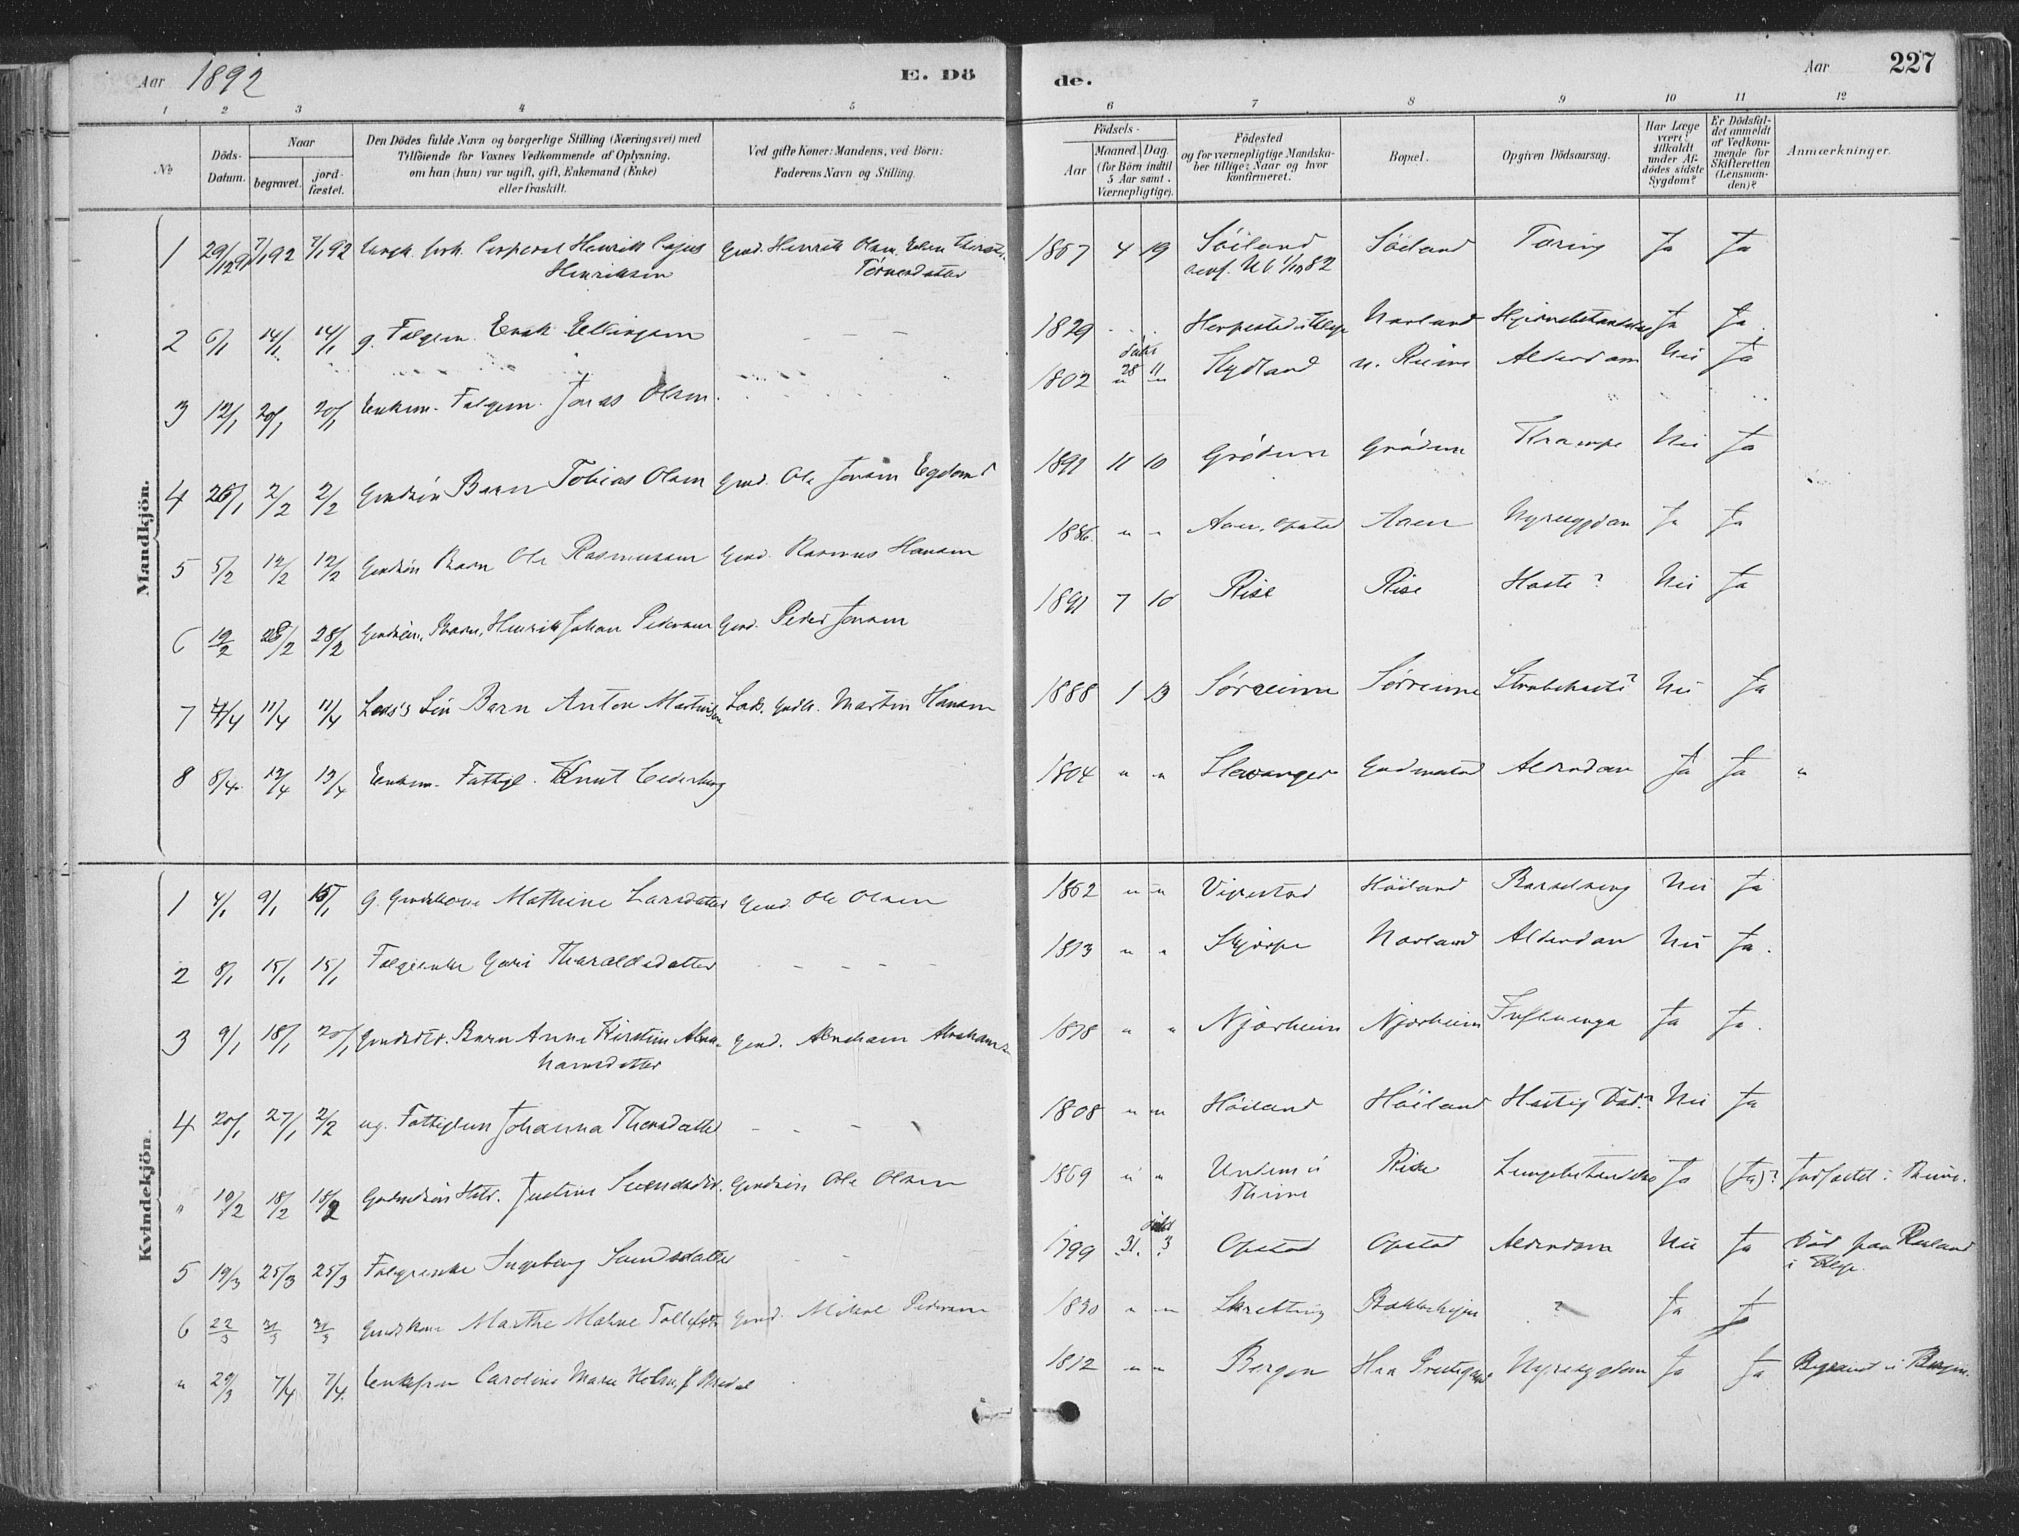 Aar 1892
E. Dö
de.
Aar
227
1 2 3 4 5 6 7 8 9 10 11 12
No
Döds-Datum.
Naar
begravet.
jord-fæstet.
Den Dödes fulde Navn og borgerlige Stilling (Næringsvei) med
Tilföiende for Voxnes Vedkommende af Oplysning,
om han (hun) var ugift, gift, Enkemand (Enke)
eller fraskilt.
Ved gifte Koner: Mandens, ved Börn:
Faderens Navn og Stilling.
Födsels-
Aar
Maaned. Dag.
(for Börn indtil
5 Aar samt
Værnepligtige).
Födested
og for værnepligtige Mandska-
ber tillige: Naar og hvor
konfirmeret.
Bopæl.
Opgiven Dödsaarsag.
Har Læge
været
tilkaldt
under Af-
dödes sidste
Sygdom?
Er Dödsfal-
det anmeldt
af Vedkom-
mende for
Skifteretten
(Lensman-
den)?
Anmærkninger.
Mandkjön.
1 29/12 91 7/1 92 7/1 92 Corporal Henrik Cajus Gmd. Henrik Olsen 1867 4 19 Söiland Söiland Tæring Ja Ja
Henriksen
2 6/1 14/1 14/1 g. Folgem. Enok Ellingsen 1829 Norland Ja Ja
3 12/1 20/1 20/1 Enkem. Folgem. Jonas Olsen 1802 døbt 28 11 Hydland n. Reime Alderdom Nei Ja
4 26/1 2/2 2/2 Gmdsön Barn Tobias Olsen Gmd. Ole Jonsen 1891 11 10 Grödem Grödem Krampe Nei Ja
5 5/2 12/2 12/2 Gmdsön Barn Ole Rasmussen Gmd. Rasmus Hansen 1886 " " Aaen, Opstad Aaen Nyresygdom Ja Ja
6 19/2 28/2 28/2 Gmdsön, Barn, Henrik Johan Pedersen Gmd. Peder Jonsen 1891 7 10 Rise Rise Hoste? Nei Ja
7 4/4 11/4 11/4 Barn Anton Martinsen Martin Hansen 1888 1 13 Sörreime Sörreime Strubehoste? Nei Ja
8 8/4 13/4 13/4 Enkem. Fattigl. Knut Cederberg 1804 " " Stavanger Alderdom Ja Ja "
Kvindekjön.
1 4/1 9/1 15/1 g. Gmdskone Mathine Larsdatter Gmd. Ole Olsen 1862 " " Vigrestad Höiland Barselseng Nei Ja
2 8/1 15/1 15/1 Folgeenke Guri Tharaldsdatter 1813 " " Skjerpe Norland Alderdom Nei Ja.
3 9/1 18/1 20/1 Gmdsdtr. Barn Anne Kirstine Abra- Gmd. Abraham Abrahamsen 1878 " " Njærheim Njærheim Influenza Ja Ja.
hamsdatter
4 20/1 27/1 2/2 ug. Fattiglem Johanna Thorsdatter 1808 " " Höiland Höiland Hastig Död? Nei Ja
" 10/2 18/2 18/2 Justine Svendsdtr. Gmdsön Ole Olsen 1869 " " Undem i Rise Lungebetændelse Ja (Ja)? Jordfæstet i Thime.
Thime
5 19/3 25/3 25/3 Folgeenke Ingeborg Samdsdatter 1799 31. døbt 3 Opstad Opstad Alderdom Nei Ja Död paa
6 22/3 31/3 31/3 Gmdskone Marthe Malene Gmd. Mikal Pedersen 1830 " " Skretting ? Ja Ja
" 29/3 7/4 7/4 Enkefru Caroline Marie Holm, f. Bredal 1812 " " Bergen Haa Prestegaard Nyresygdom Ja Ja Begravet i Bergen.